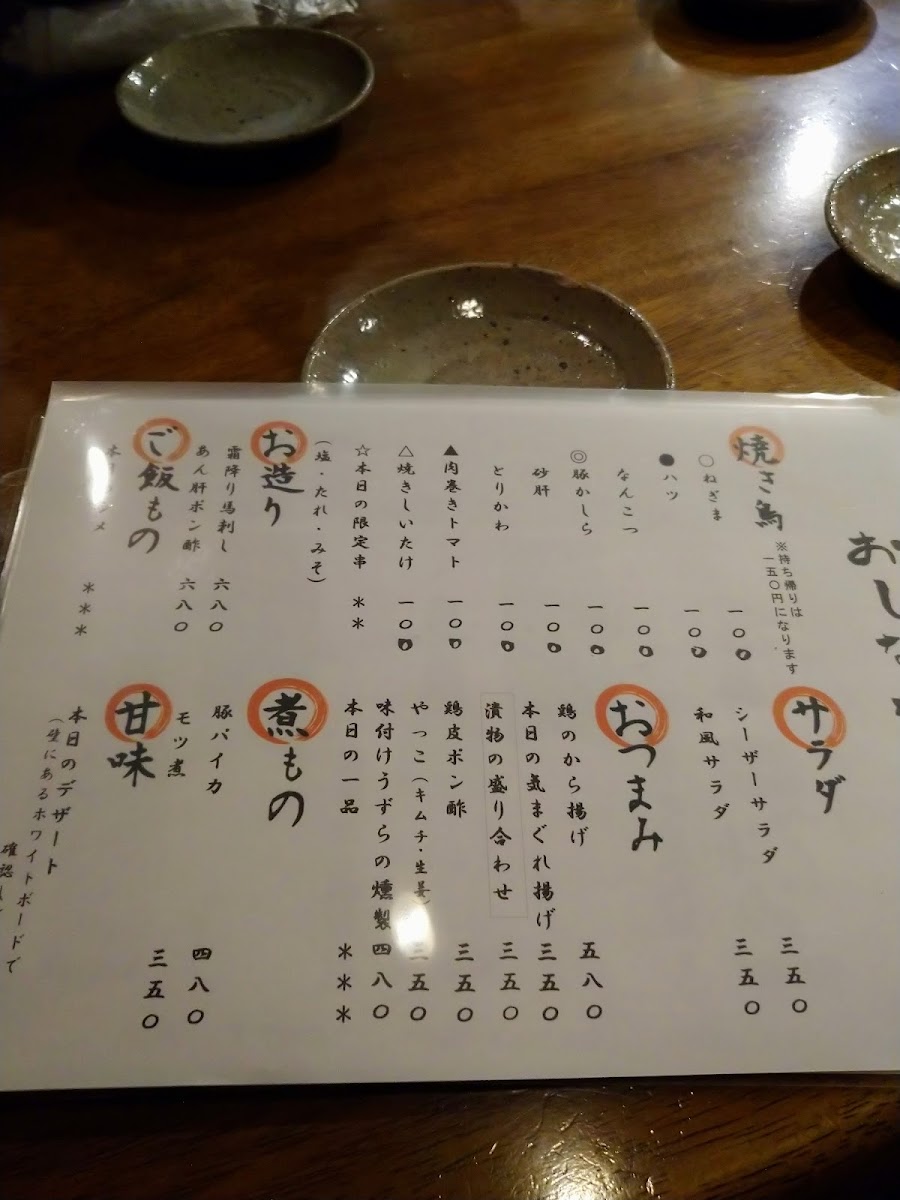 おしな
焼き鳥
※持ち帰りは
一五〇円になります
〇ねぎま 一〇〇
●ハツ 一〇〇
なんこつ 一〇〇
◎豚かしら 一〇〇
砂肝 一〇〇
とりかわ 一〇〇
▲肉巻きトマト 一〇〇
△焼きしいたけ 一〇〇
☆本日の限定串 ＊＊
(塩・たれ・みそ)
お造り
霜降り馬刺し 六八〇
あん肝ポン酢 六八〇
ご飯もの
＊＊＊
サラダ
シーザーサラダ 三五〇
和風サラダ 三五〇
おつまみ
鶏のから揚げ 五八〇
本日の気まぐれ揚げ 三五〇
漬物の盛り合わせ 三五〇
鶏皮ポン酢 三五〇
やっこ(キムチ・生姜) 三五〇
味付けうずらの燻製 四八〇
本日の一品 ＊＊＊
煮もの
豚バイカ 四八〇
モツ煮 三五〇
甘味
本日のデザート
(壁にあるホワイトボードで
確認